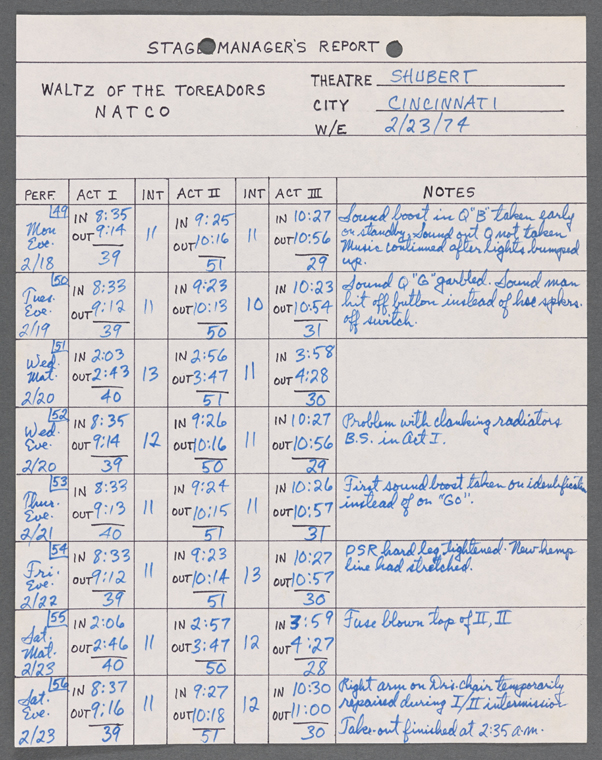 STAGE MANAGER'S REPORT
WALTZ OF THE TOREADORS
NATCO
THEATRE SHUBERT
CITY CINCINNATI
W/E 2/23/74
PERF. ACT I INT ACT II INT ACT III NOTES
49
Mon Eve. 2/18
IN 8:35
OUT 9:14
39
11
IN 9:25
OUT 10:16
51
11
IN 10:27
OUT 10:56
29
Sound boost in Q "B" taken early
on standby. Sound out Q not taken
Music continued after lights bumped
up.
50
Tues. Eve. 2/19
IN 8:33
OUT 9:12
39
11
IN 9:23
OUT 10:13
50
10
IN 10:23
OUT 10:54
31
Sound Q "G" garbled. Sound man
hit off button instead of hse spkrs.
off switch.
51
Wed. Mat. 2/20
IN 2:03
OUT 2:43
40
13
IN 2:56
OUT 3:47
51
11
IN 3:58
OUT 4:28
30
52
Wed. Eve. 2/20
IN 8:35
OUT 9:14
39
12
IN 9:26
OUT 10:16
50
11
IN 10:27
OUT 10:56
29
Problem with clanking radiators
B.S. in Act I.
53
Thur. Eve. 2/21
IN 8:33
OUT 9:13
40
11
IN 9:24
OUT 10:15
51
11
IN 10:26
OUT 10:57
31
First sound boost taken on identification
instead of on "Go".
54
Fri. Eve. 2/22
IN 8:33
OUT 9:12
39
11
IN 9:23
OUT 10:14
51
13
IN 10:27
OUT 10:57
30
DSR hard leg tightened. New hemp
line had stretched.
55
Sat. Mat. 2/23
IN 2:06
OUT 2:46
40
11
IN 2:57
OUT 3:47
50
12
IN 3:59
OUT 4:27
28
Fuse blown top of II, II
56
Sat. Eve. 2/23
IN 8:37
OUT 9:16
39
11
IN 9:27
OUT 10:18
51
12
IN 10:30
OUT 11:00
30
Right arm on Dr's. chair temporarily
repaired during I/II intermission
Take-out finished at 2:35 a.m.